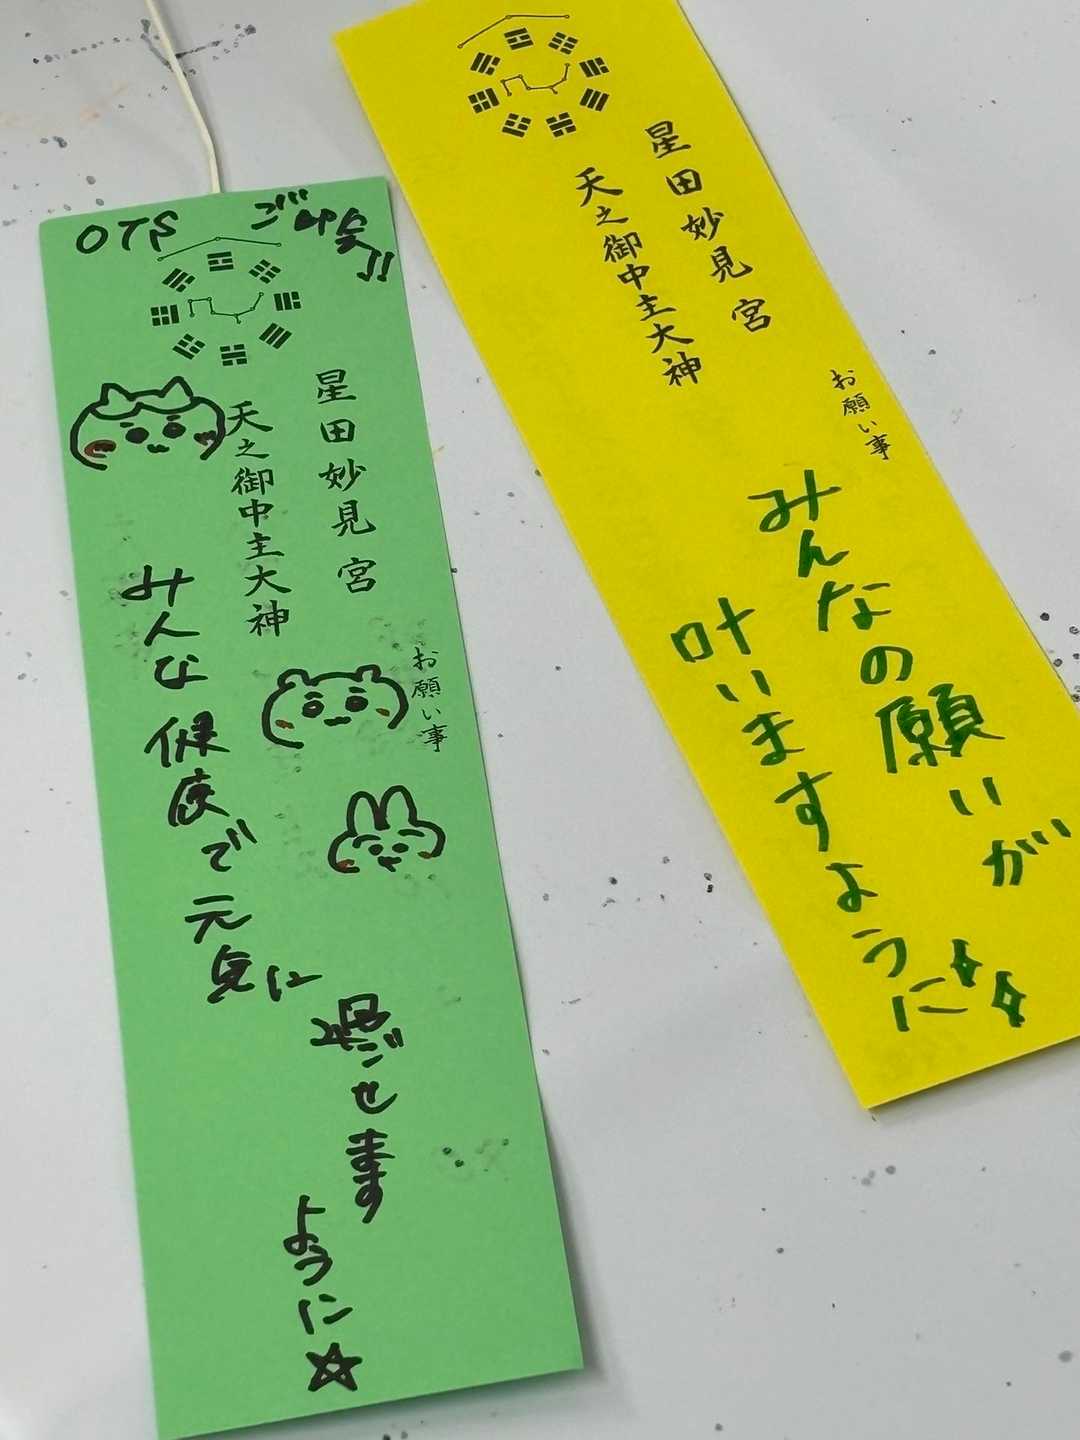 OTS
星田妙見宮
天之御中主大神
お願い事
みんな健康で元気に
過ごせます
ように☆
星田妙見宮
天之御中主大神
お願い事
みんなの願いが
叶いますように